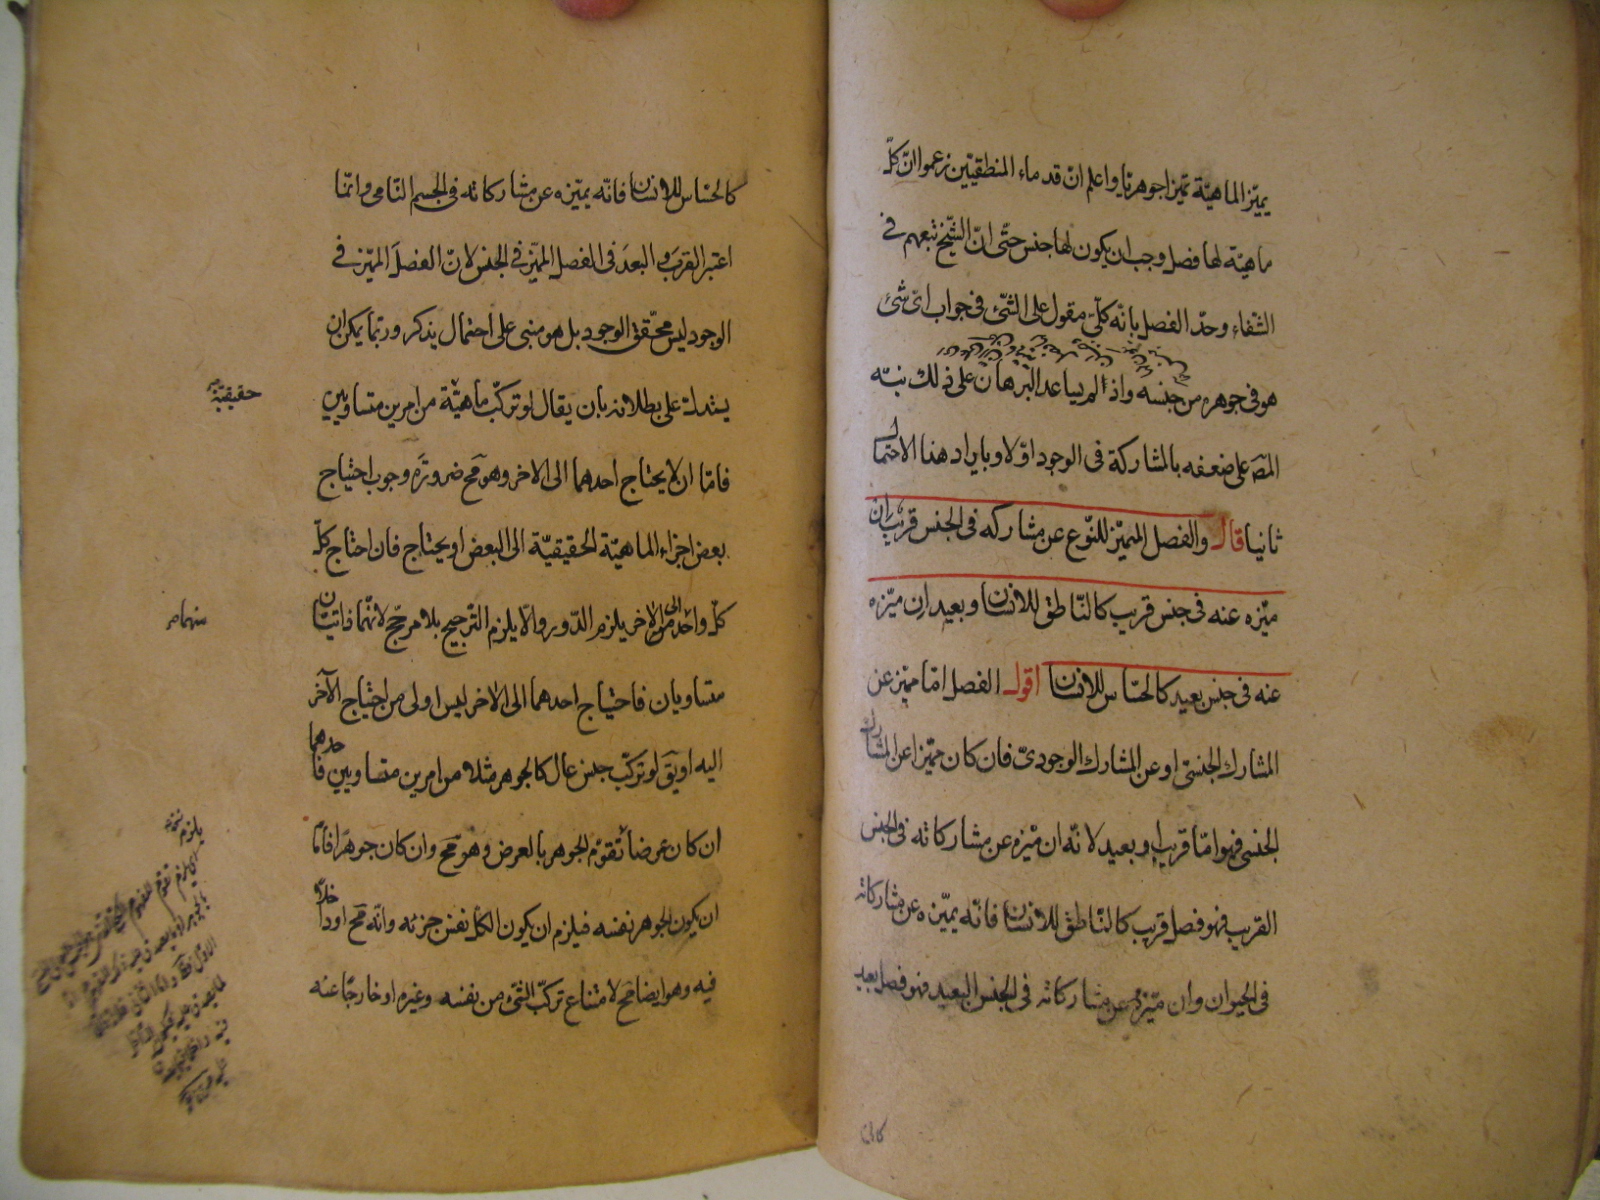 يميّز الماهيّة تميّزا جوهريّا واعلم انّ قدماء المنطقيّين زعموا انّ كلّ
ماهيّة لها فصل وجب ان يكون لها جنس حتّى انّ الشّيخ تبعهم في
الشّفاء وحدّ الفصل بانّه كلّيّ مقول على الشّئ في جواب ايّ شئ
هو في جوهره من جنسه واذا لم يساعد البرهان على ذلك نبّه
المص على ضعفه بالمشاركة في الوجود اوّلا وبايراد هذا الاحتمال
ثانيا قال والفصل المميّز للنّوع عن مشاركه في الجنس قريب ان
ميّزه عنه في جنس قريب كالنّاطق للانسان وبعيد ان ميّزه
عنه في جنس بعيد كالحسّاس للانسان اقول الفصل امّا مميّز عن
المشارك الجنسيّ او عن المشارك الوجوديّ فان كان مميّزا عن المشارك
الجنسي فهو امّا قريب او بعيد لانّه ان ميّزه عن مشاركاته في الجنس
القريب فهو فصل قريب كالنّاطق للانسان فانّه يميّزه عن مشاركاته
في الحيوان وان ميّزه عن مشاركاته في الجنس البعيد فهو فصل بعيد
كالحسّاس للانسان فانّه يميّزه عن مشاركاته في الجسم النّامي وانّما
اعتبر القرب والبعد في الفصل المميّز في الجنس لانّ الفصل المميّز في
الوجود ليس محقّق الوجود بل هو مبنى على احتمال يذكر وربّما يمكن ان
يستدلّ على بطلانه بان يقال لو تركّب ماهيّة من امرين متساويين
حقيقيّة
فامّا ان لا يحتاج احدهما الى الاخر وهو مح ضرورة وجوب احتياج
بعض اجزاء الماهيّة الحقيقيّة الى البعض او يحتاج فان احتاج كلّ
كلّ واحد الى الاخر يلزم الدّور والّا يلزم التّرجيح بلا مرجّح لانّهما ذاتيّان
منهما
متساويان فاحتياج احدهما الى الاخر ليس اولى من احتياج الآخر
اليه او يق لو تركّب جنس عال كالجوهر مثلا من امرين متساويين فاحدهما
ان كان عرضا تقوّم الجوهر بالعرض وهو مح وان كان جوهرا فامّا
ان يكون الجوهر نفسه فيلزم ان يكون الكلّ نفس جزئه وانّه مح او داخلا
فيه وهو ايضا مح لامتناع تركّب الشّئ من نفسه وغيره او خارجا عنه